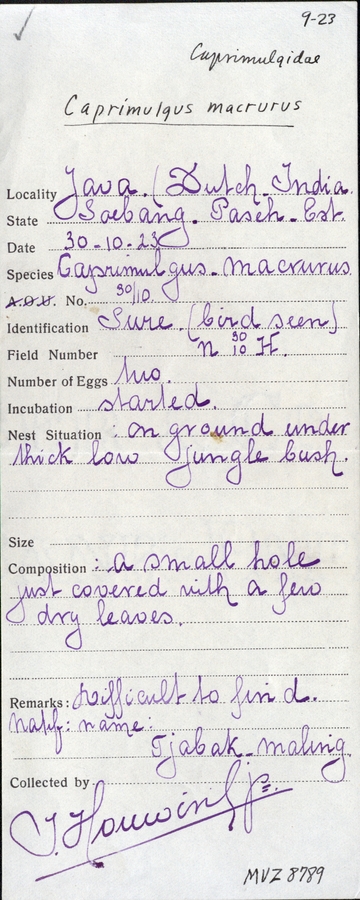 9-23
Caprimulgidae
Caprimulgus macrurus
Locality Java. (Dutch-India.
State Soebang. Paseh-Est.
Date 30-10-23
Species Caprimulgus-macrurus
A.O.U. No. 30/10.
Identification Sure. (bird seen)
Field Number n 30/10 H.
Number of Eggs two.
Incubation started.
Nest Situation : on ground under
thick low jungle bush.
Size
Composition : a small hole
just covered with a few
dry leaves.
Remarks: Difficult to find.
name:
Tjabak-maling.
Collected by
MVZ 8789